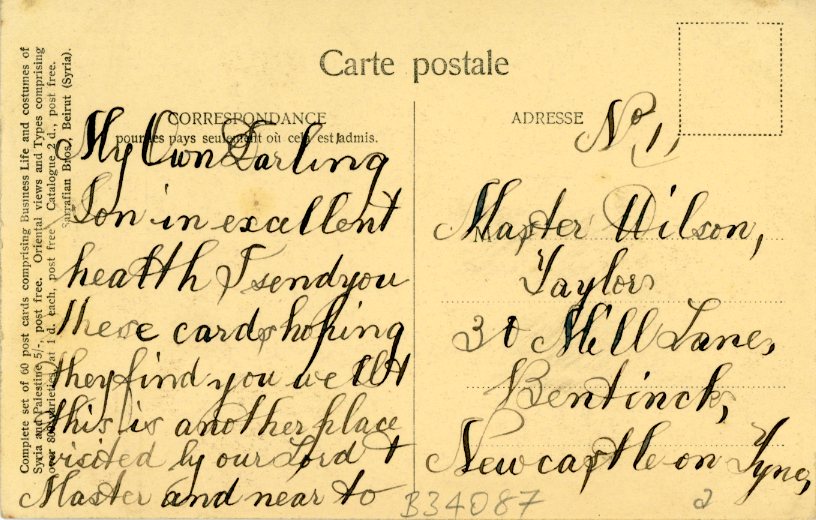 Complete set of 60 post cards comprising Business Life and costumes of
Syria and Palestine, 5/-, post free. Oriental views and Types comprising
over 800 varieties, at 1 d. each, post free. Catalogue 2 d., post free.
Sarrafian Bros., Beirut (Syria).
Carte postale
CORRESPONDANCE
pour les pays seulement où cela est admis.
My Own Darling
Son in excellent
health I send you
these cards hoping
they find you well At
this is another place
visited by our Lord &
Master and near to
ADRESSE
No 11
Master Wilson,
Taylor
30 Mill Lane,
Bentinck,
Newcastle on Tyne,
B34087
a